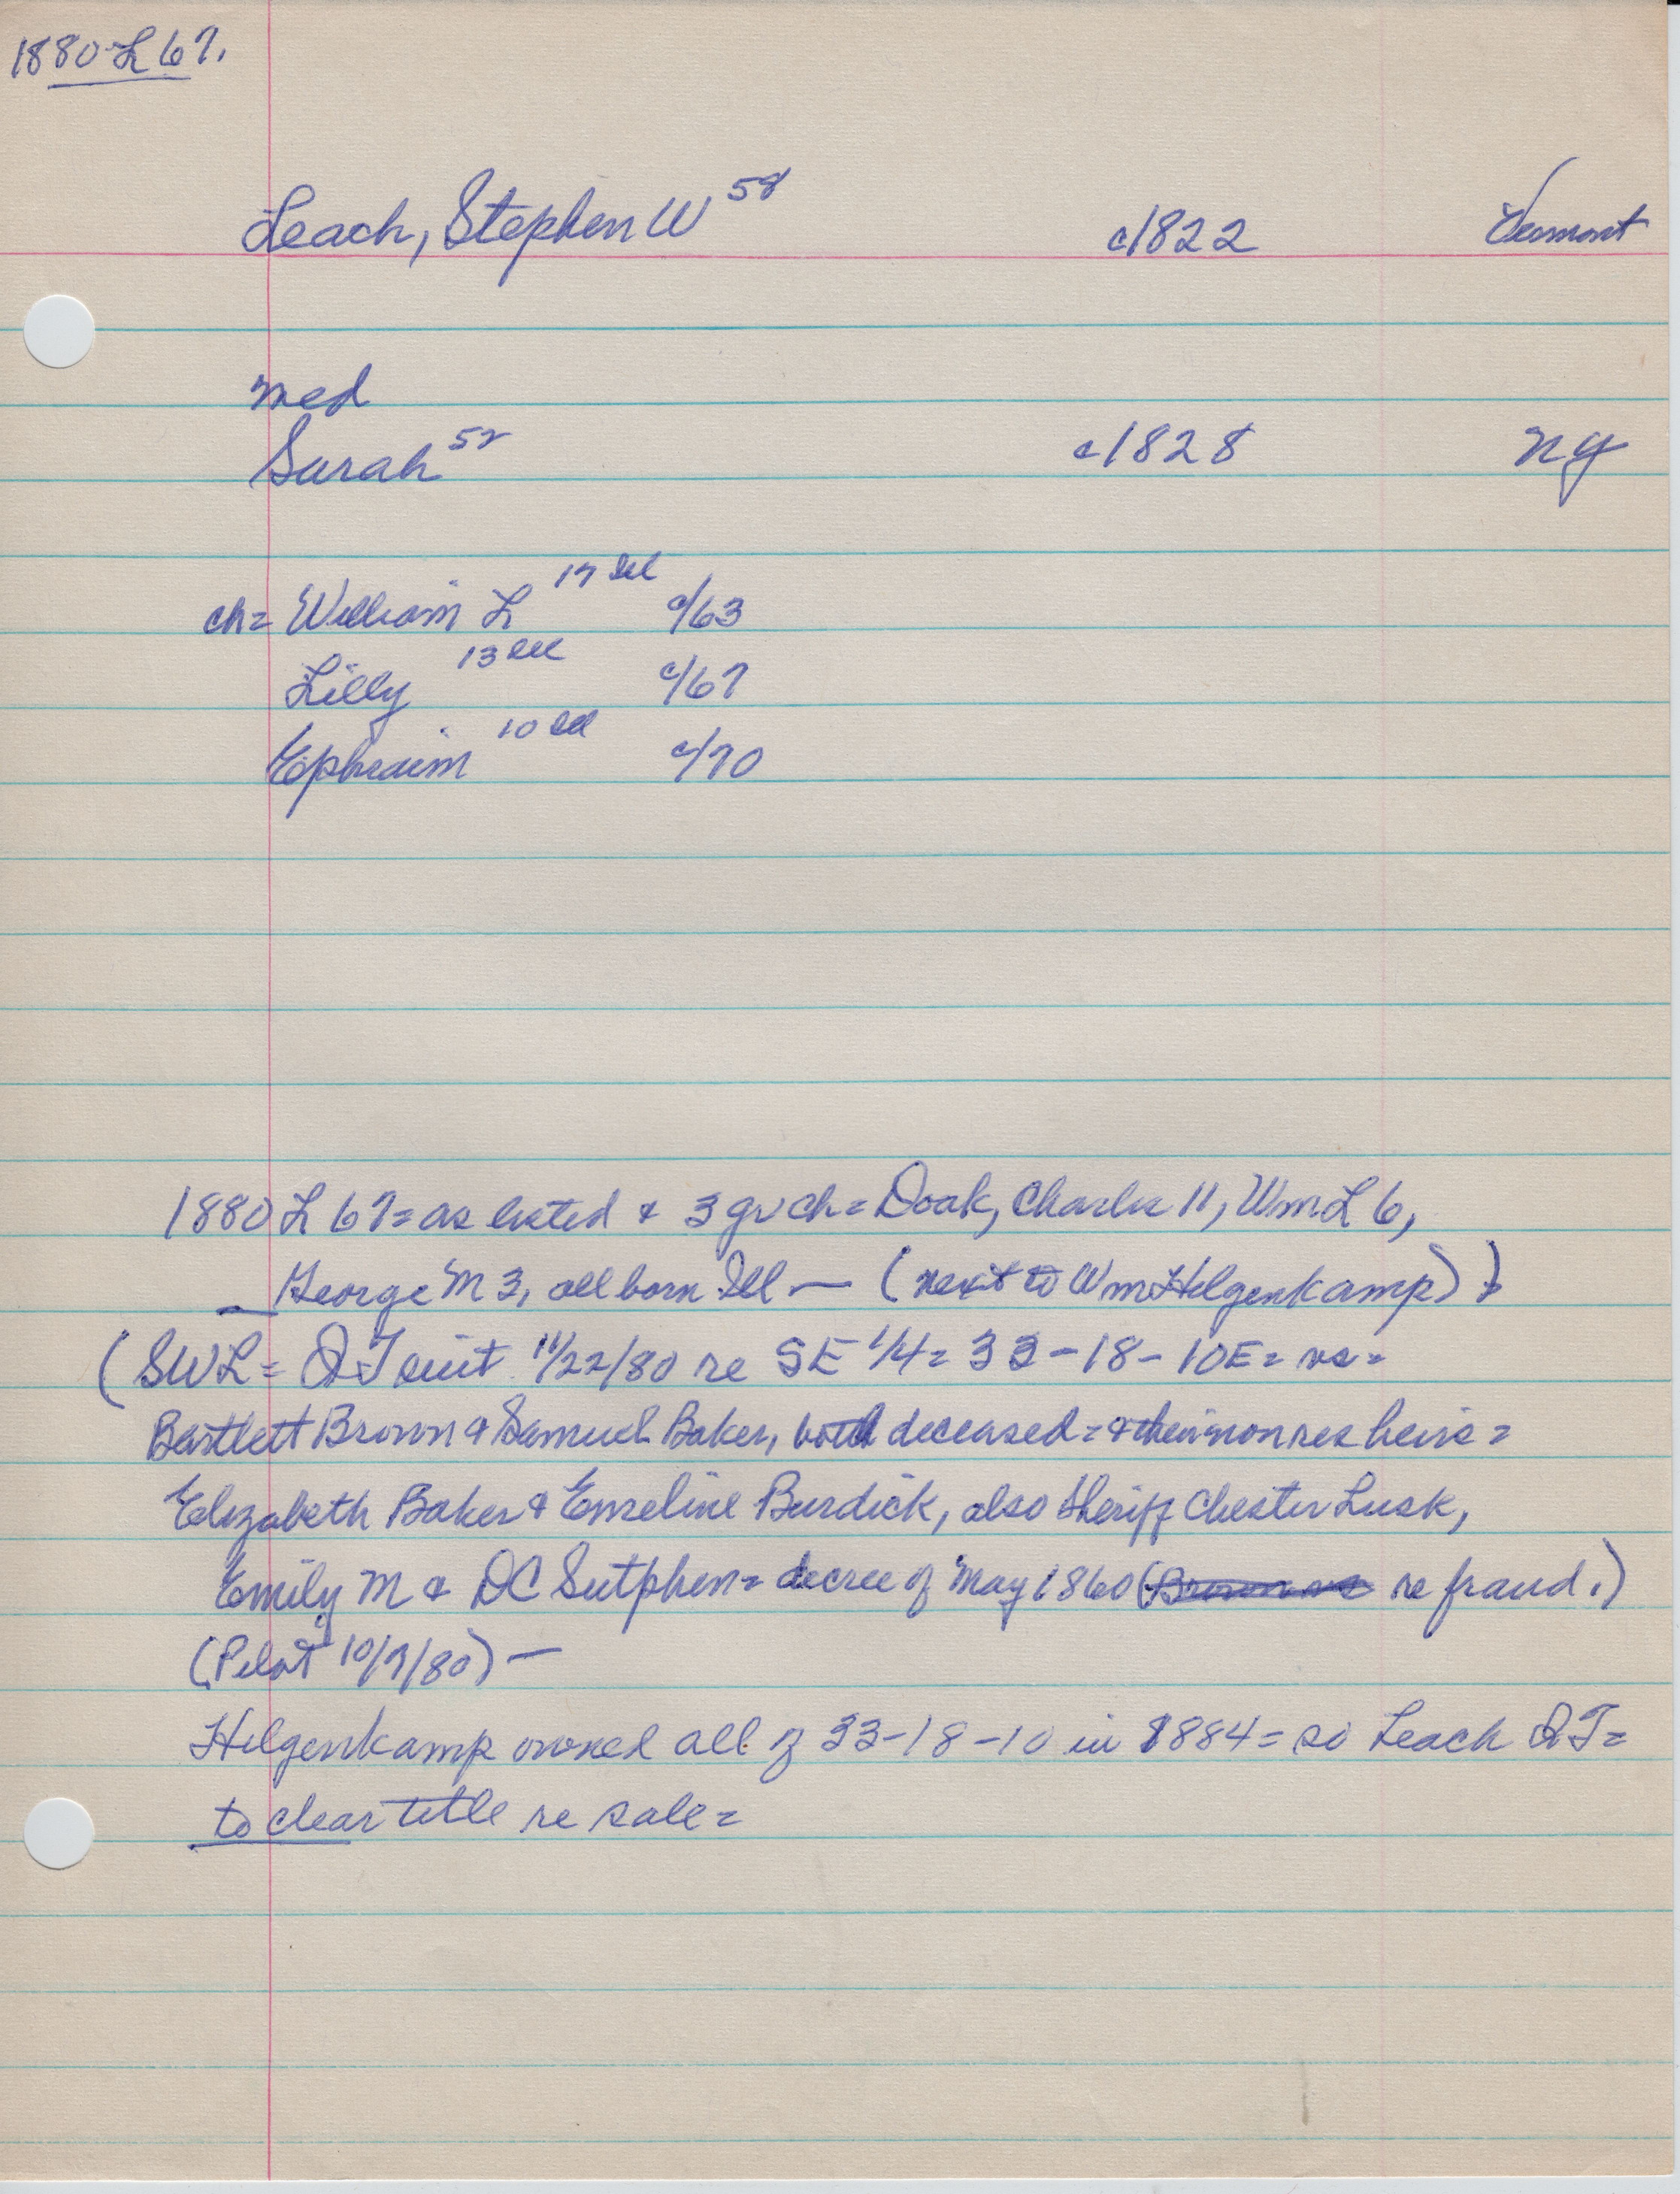 1880 L 67.
Leach, Stephen W 58 c1822 Vermont
med
Sarah 52 c1828 NY
ch= William L 17 Ill c/63
Lilly 13 Ill c/67
Ephraim 10 Ill c/70
1880 L 67 = as listed & 3 gr ch = Doak, Charles 11, Wm L 6,
George M 3, all born Ill — (next to Wm Hilgenkamp)
(SWL = QT suit 11/22/80 re SE 1/4 = 33-18-10E = vs =
Bartlett Brown & Samuel Baker, both deceased = & their non res heirs =
Elizabeth Baker & Emeline Burdick, also Sheriff Chester Lusk,
Emily M & DC Sutphen = decree of May 1860 (Brown vs re fraud.)
(Pilot 10/7/80) —
Hilgenkamp owned all of 33-18-10 in 1884 = so Leach QT =
to clear title re sale =